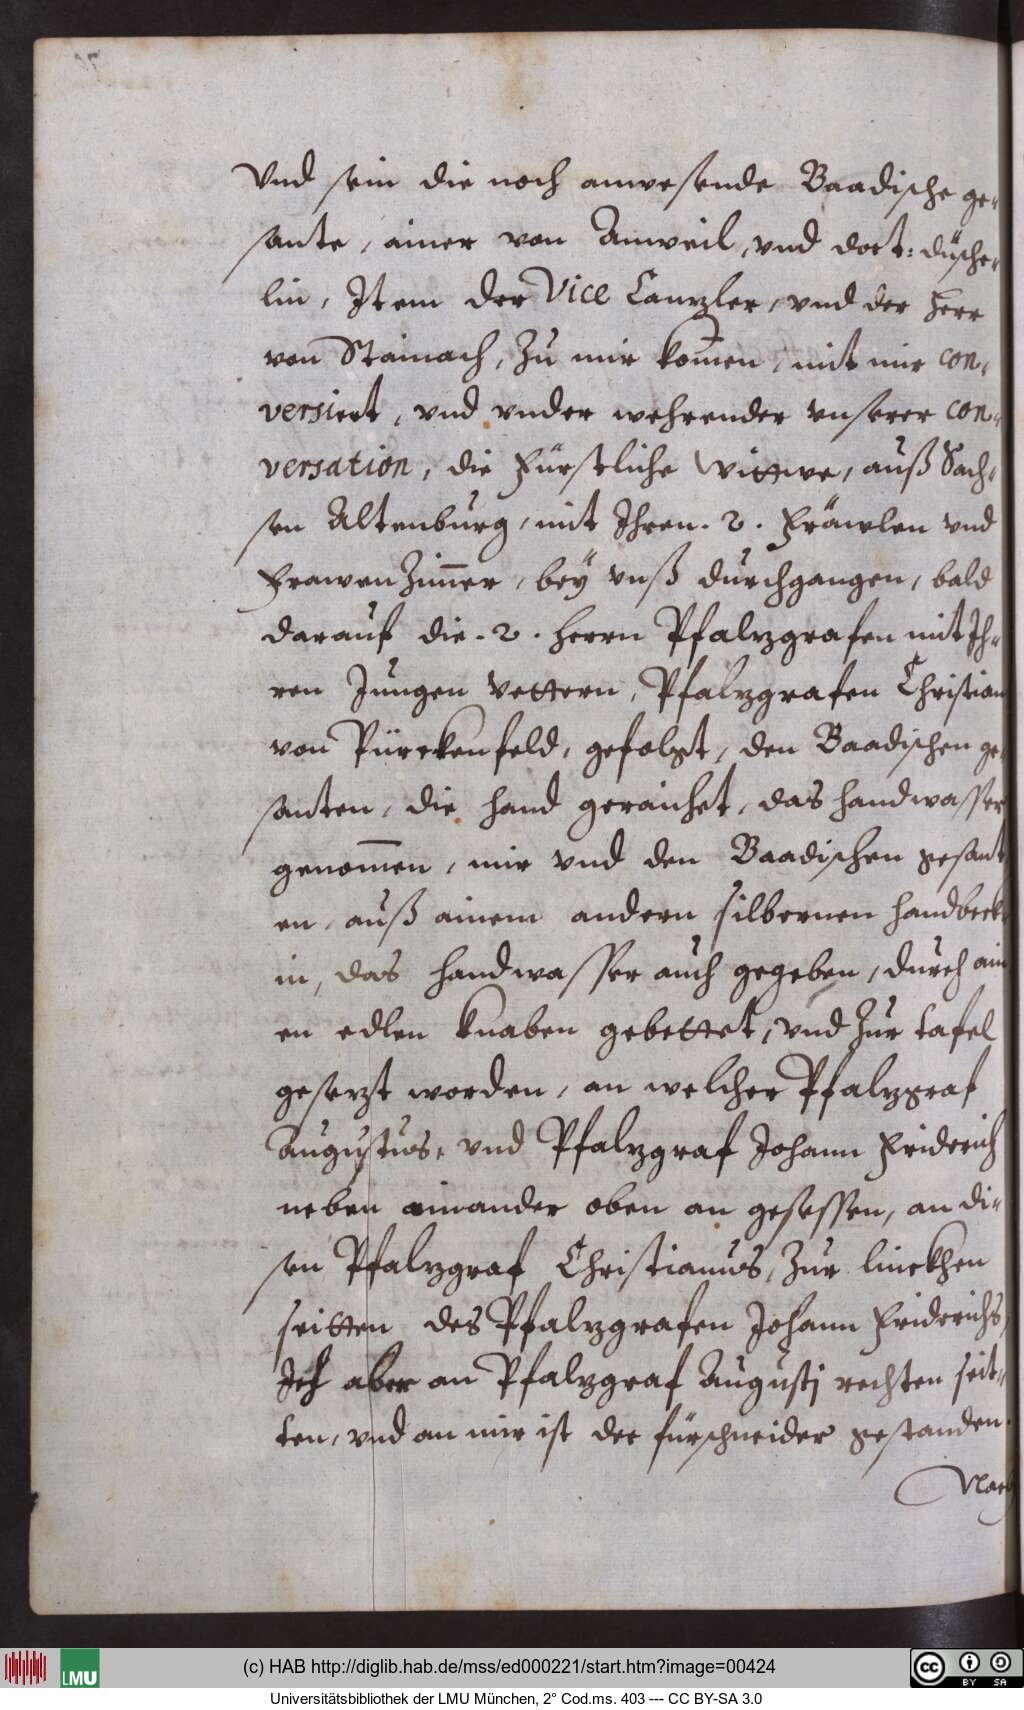 Vnd sein die noch anwesende Baadische ge-
sante, ainer von Anweil, vnd doct: düsche-
lin, Item der Vice Canzler, vnd der Herr
von Stainach, Zu mir kom̄en, mit mir con-
versiert, vnd vnder wehrender vnserer con-
versation, die Fürstliche Wittwe, auß Sach-
sen Altenburg, mit Ihren .2. Fräwlen vnd
FrawenZim̄er, beÿ vnß durchgangen, bald
darauf die .2. Herrn Pfalzgrafen mit Ih-
ren Jungen Vettern, Pfalzgrafen Christian
von Pürckenfeld, gefolgt, den Baadischen ge-
santen, die hand geraichet, das handwasser
genom̄en, mir vnd den Baadischen gesant
en, auß ainem andern silbernen handbeck-
in, das handwasser auch gegeben, durch ain
en edlen knaben gebettet, vnd Zur tafel
gesezt worden, an welcher Pfalzgraf
Augustus, vnd Pfalzgraf Johann Friderich
neben ainander oben an gesessen, an di-
sen Pfalzgraf Christianus, Zur linckhen
seitten des Pfalzgrafen Johann Friderichs,
Ich aber an Pfalzgraf Augustj rechten seit-
ten, vnd an mir ist der fürschneider gestanden.
Nach
LMU
(c) HAB http://diglib.hab.de/mss/ed000221/start.htm?image=00424
cc BY SA
Universitätsbibliothek der LMU München, 2° Cod.ms. 403 --- CC BY-SA 3.0